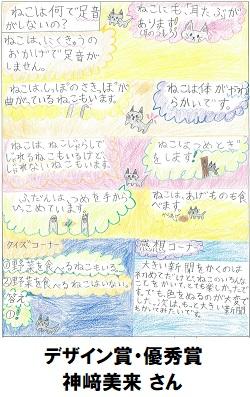 ねこは何で足音
がしないの？
ねこは、にくきゅうの
おかげで足音が
しません。
ねこにも“耳たぶ”が
あります
ねこは、しっぽのさき、ぽが
曲がっているねこもいます。
ねこは体がや
わらかいです。
ねこは、ねこじゃらしで
じゃれるねこもいるけど、じ
ゃれないねこもいます。
ねこはつめとぎ
をします!
ふだんは、つめを手から
ひっこめています。
ねこは、あげものも食
べます。
クイズコーナー
①野菜を食べるねこもいる。
②野菜を食べるねこはいない。
答え
①!
感想コーナー
大きい新聞をかくのは
初めてだけどねこのいろんな
ことをかいて、とても楽しかった
です。でも、色をぬるのが大変で
した。次は、もっと大きい新聞
もかいてみたいです。
デザイン賞・優秀賞
神﨑美来 さん